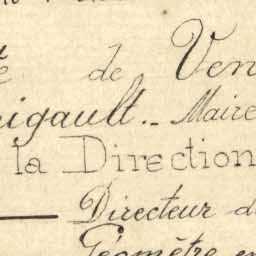 de Ven
igault.. Maire
la Direction
Directeur d
Géomètre